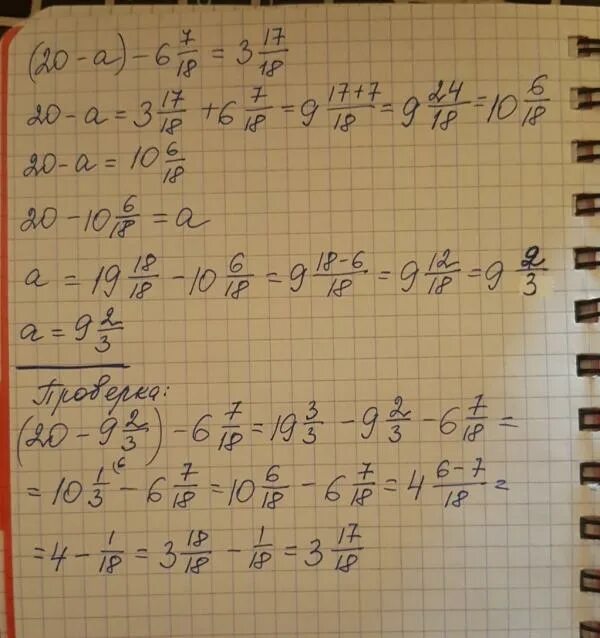 (20 - a) - 6 7/18 = 3 17/18
20 - a = 3 17/18 + 6 7/18 = 9 17+7/18 = 9 24/18 = 10 6/18
20 - a = 10 6/18
20 - 10 6/18 = a
a = 19 18/18 - 10 6/18 = 9 18-6/18 = 9 12/18 = 9 2/3
a = 9 2/3
Проверка:
(20 - 9 2/3) - 6 7/18 = 19 3/3 - 9 2/3 - 6 7/18 =
= 10 1/3 (6 - 6 7/18 = 10 6/18 - 6 7/18 = 4 6-7/18 =
= 4 - 1/18 = 3 18/18 - 1/18 = 3 17/18